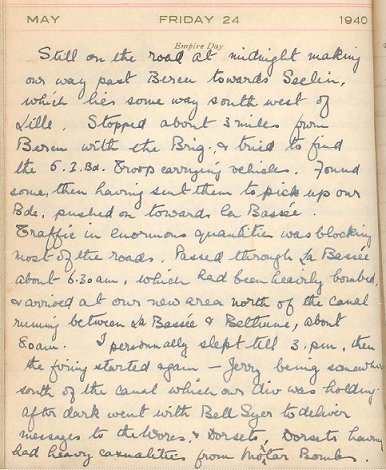 MAY FRIDAY 24 1940
Empire Day
Still on the road at midnight making
our way past Beren towards Seclin,
which lies some way south west of
Lille. Stopped about 3 miles from
Beren with the Brig. & tried to find
the 5. I. Bd. Troop carrying vehicles. Found
some, then having sent them to pick up our
Bde, pushed on towards La Bassée.
Traffic in enormous quantities was blocking
most of the roads. Passed through La Bassée
about 6.30am, which had been heavily bombed,
& arrived at our new area north of the canal
running between La Bassée & Bethune, about
8.0am. I personnally slept till 3.pm, then
the firing started again – Jerry being somewhere
south of the canal which our div was holding.
After dark went with Bell Syer to deliver
messages to the Worcs, & Dorsets, Dorsets having
had heavy casualities from Mortar Bombs.